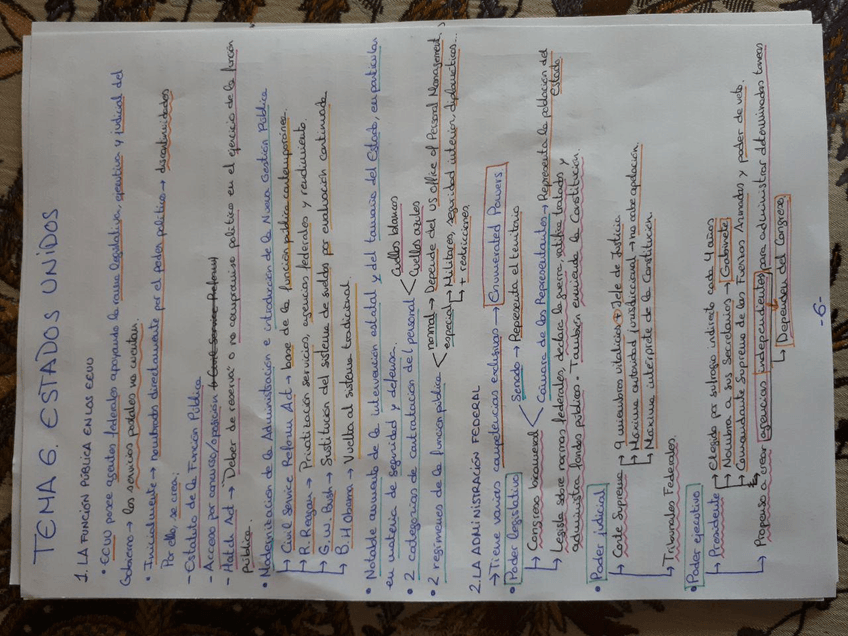 TEMA 6. ESTADOS UNIDOS
1. LA FUNCIÓN PÚBLICA EN LOS EEUU
• EEUU posee agentes federales apoyando la rama legislativa, ejecutiva y judicial del
Gobierno → los servicios postales no cuentan.
• Inicialmente → nombrado directamente por el poder político → discontinuidades
Por ello, se crea:
- Estatuto de la Función Pública
- Acceso por concurso/oposición → Civil Service Reform
- Hatch Act → Deber de reserva o no compromiso político en el ejercicio de la función
pública.
• Modernización de la Administración e introducción de la Nueva Gestión Pública
↳ Civil Service Reform Act → base de la función pública contemporánea.
↳ R. Reagan → Privatización servicios, agencias federales y rendimiento.
↳ G.W. Bush → Sustitución del sistema de sueldos por evaluación continuada
↳ B.H Obama → Vuelta al sistema tradicional.
• Notable aumento de la intervención estatal y del tamaño del Estado, en particular
en materia de seguridad y defensa.
• 2 categorías de contratación del personal < Cuellos blancos
Cuellos azules
• 2 regímenes de la función pública < normal → Depende del US Office of Personal Management.
especial → Militares, seguridad interior, diplomáticos...
↳ + restricciones.
2. LA ADMINISTRACIÓN FEDERAL
→ Tiene varias competencias exclusivas → Enumerated Powers.
• Poder legislativo
↳ Congreso bicameral < Senado → Representa el territorio
Cámara de los Representantes → Representa la población del
Estado
↳ Legisla sobre normas federales, declara la guerra, ratifica tratados y
administra fondos públicos. También enmienda la Constitución.
• Poder judicial
↳ Corte Suprema → 9 miembros vitalicios + Jefe de Justicia
↳ Máxima autoridad jurisdiccional → no cabe apelación.
↳ Máxime intérprete de la Constitución.
↳ Tribunales Federales.
• Poder ejecutivo
↳ Presidente → Elegido por sufragio indirecto cada 4 años
↳ Nombra a sus Secretarios → Gabinete
↳ Comandante Supremo de las Fuerzas Armadas y poder de veto.
↳ Propenso a crear agencias independientes para administrar determinadas tareas
↳ Dependen del Congreso
-6-